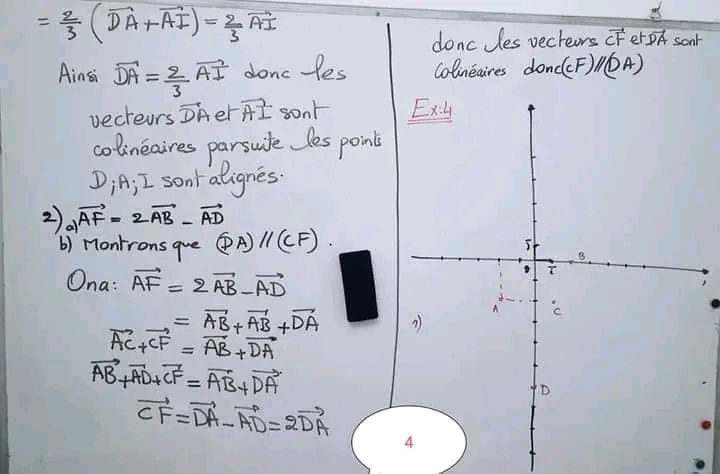 = 2/3 (DA⃗ + AI⃗) = 2/3 AI⃗
Ainsi DA⃗ = 2/3 AI⃗ donc les
vecteurs DA⃗ et AI⃗ sont
colinéaires parsuite les points
D;A;I sont alignés.
2) a) AF⃗ = 2AB⃗ - AD⃗
b) Montrons que (DA) // (CF).
Ona: AF⃗ = 2AB⃗ - AD⃗
= AB⃗ + AB⃗ + DA⃗
AC⃗ + CF⃗ = AB⃗ + DA⃗
AB⃗ + AD⃗ + CF⃗ = AB⃗ + DA⃗
CF⃗ = DA⃗ - AD⃗ = 2DA⃗
donc les vecteurs CF⃗ et DA⃗ sont
colinéaires donc (CF) // (DA)
Ex:4
B
A
C
1)
D
4